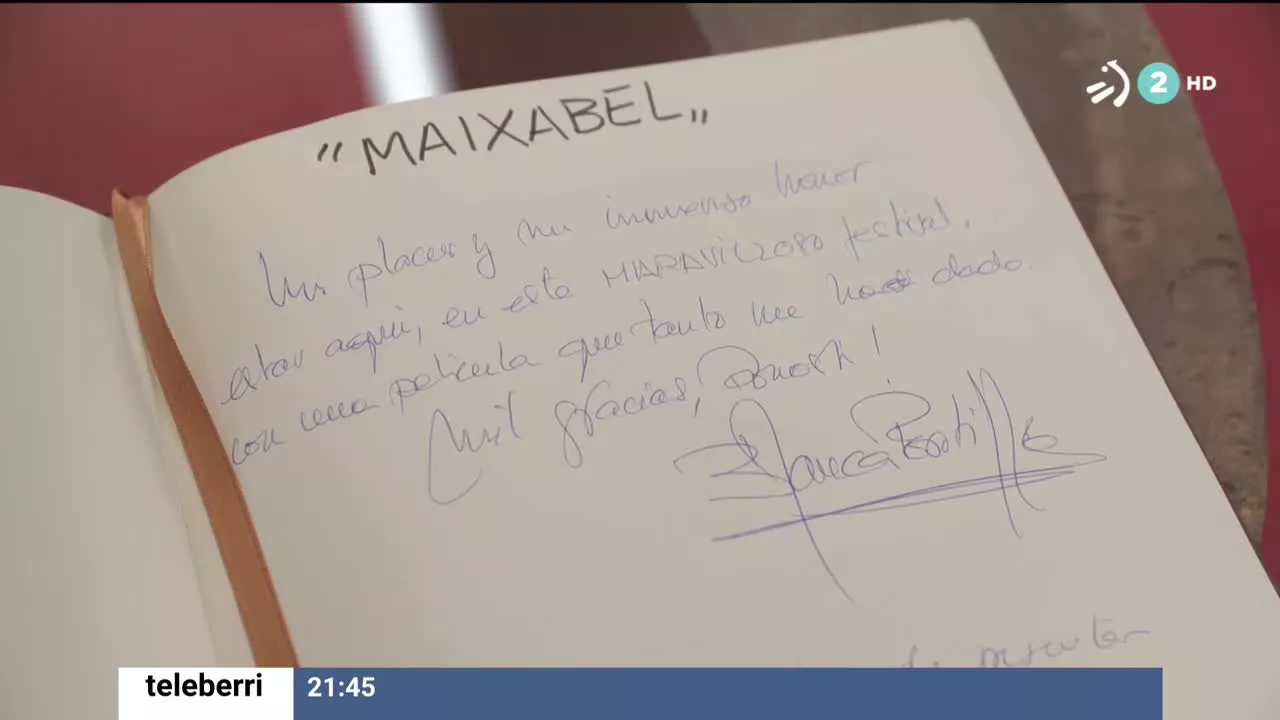 "MAIXABEL"
Un placer y un inmenso honor
estar aquí, en este MARAVILLOSO festival,
con una película que tanto me ha dado.
Mil gracias, Donosti!
Blanca Portillo
2 HD
teleberri 21:45